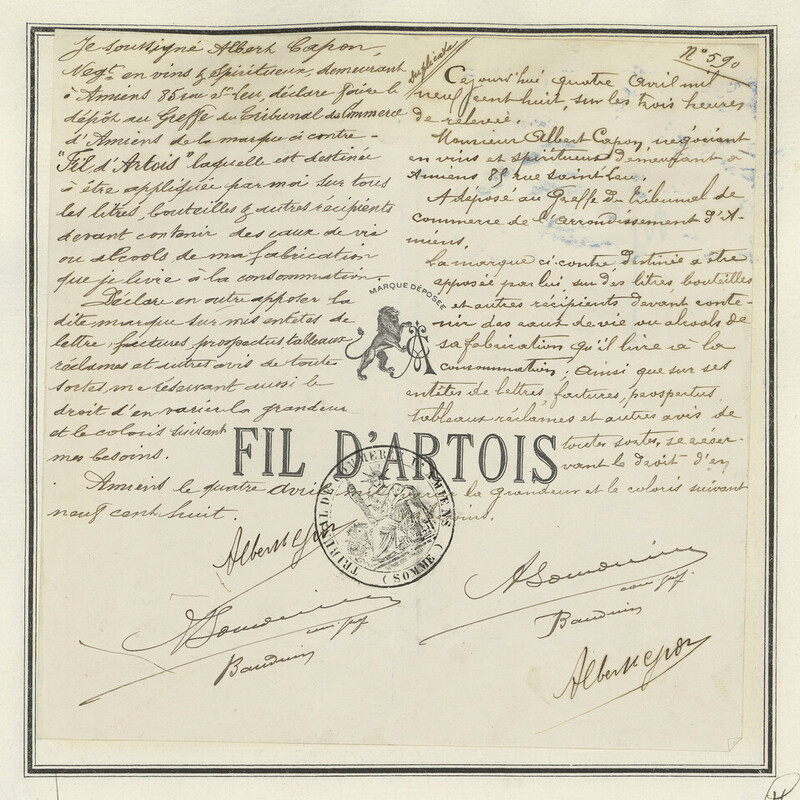 Je soussigné Albert Capon,
Negt en vins & Spiritueux, demeurant
à Amiens 85 rue St Leu, déclare faire le
dépôt au Greffe du Tribunal de Commerce
d'Amiens de la marque ci contre -
"Fil d'Artois" laquelle est destinée
à être appliquée par moi sur tous
les litres, bouteilles & autres récipients
devant contenir des eaux de vie
ou alcools de ma fabrication
que je livre à la consommation.
Déclare en outre apposer la
dite marque sur mes entetes de
lettre, factures, prospectus tableaux
réclames et autres avis de toutes
sortes me réservant aussi le
droit d'en varier la grandeur
et le coloris suivant
mes besoins.
Amiens le quatre avril mil
neuf cent huit.
Albert Capon
Bauduin
Duplicata
N° 590
Cejourd'hui quatre Avril mil
neuf cent huit, sur les trois heures
de relevée.
Monsieur Albert Capon, négociant
en vins et spiritueux demeurant à
Amiens 85 rue Saint Leu.
A déposé au Greffe du Tribunal de
commerce de l'arrondissement d'A-
miens.
La marque ci-contre destinée a être
apposée par lui, sur des litres, bouteilles
et autres récipients devant conte-
nir des eaux de vie ou alcools de
sa fabrication qu'il livre à la
consommation; ainsi que sur ses
entêtes de lettres, factures, prospectus
tableaux réclames et autres avis de
toutes sortes, se réser-
vant le droit d'en
la grandeur et le coloris suivant
Bauduin
Albert Capon
MARQUE DÉPOSÉE
FIL D'ARTOIS
TRIBUNAL DE COMMERCE D'AMIENS
(SOMME)